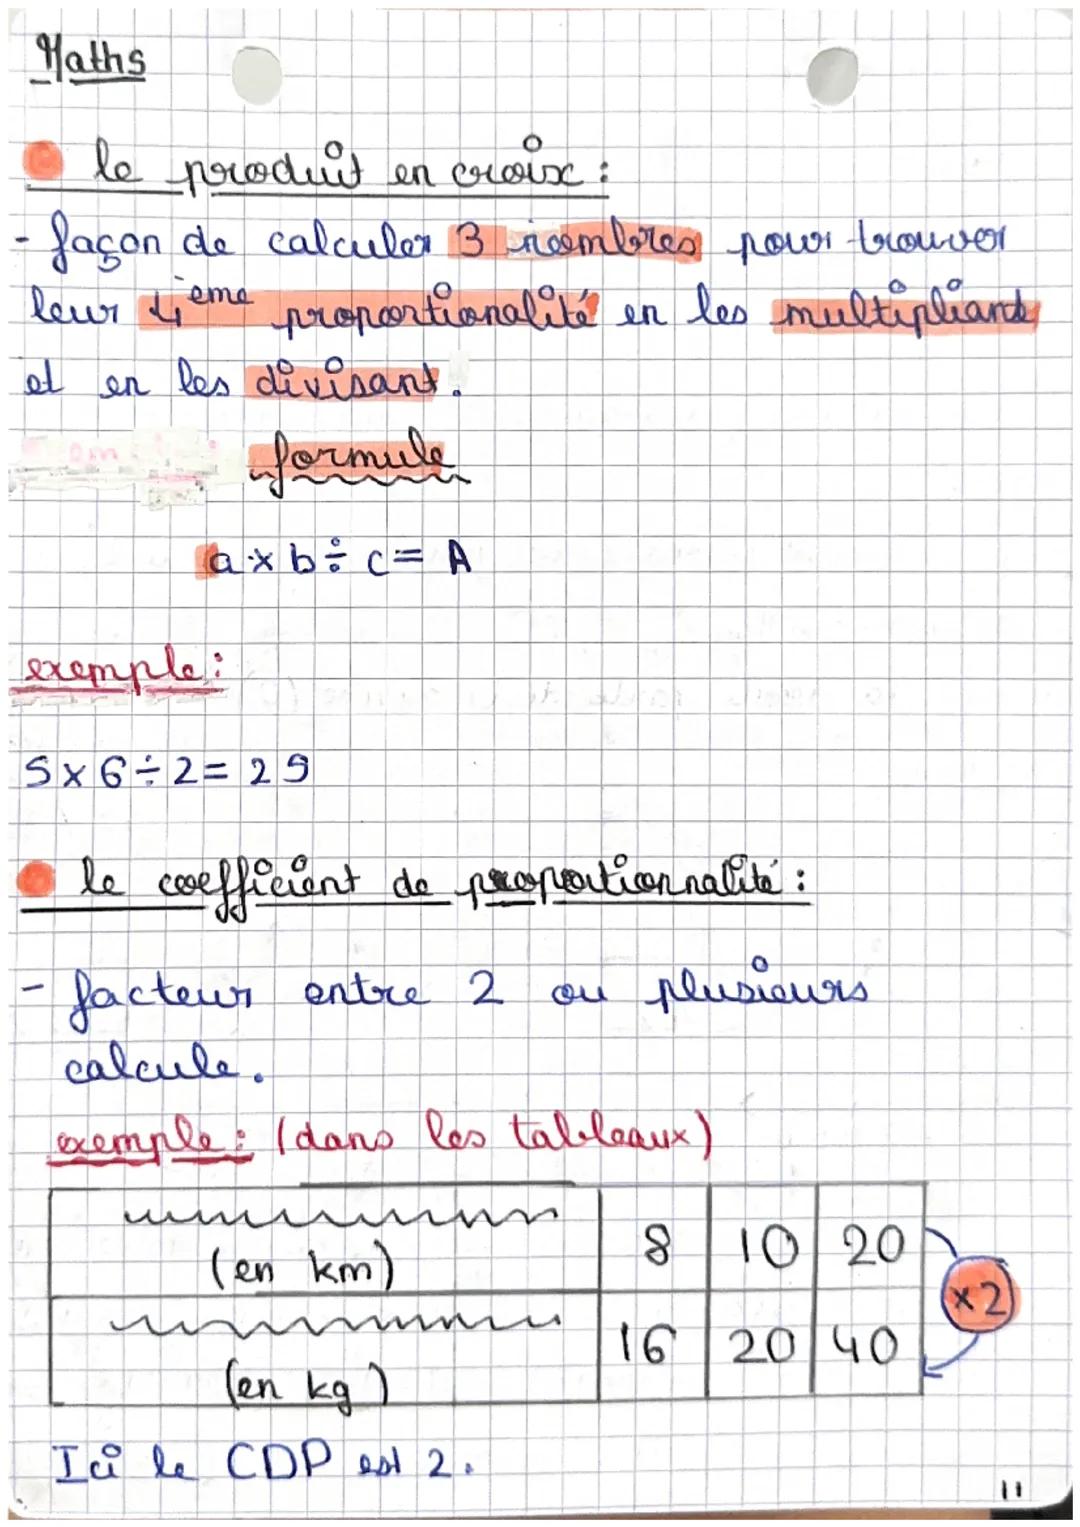 Maths
le produit en croix :
- façon de calculer 3 nombres pour trouver
leur 4ème proportionalité en les multipliant
et en les divisant.
formule
a x b ÷ c = A
exemple :
5 x 6 ÷ 2 = 25
le coefficient de proportionnalité :
- facteur entre 2 ou plusieurs
calcule.
exemple : (dans les tableaux)
(en km) 8 10 20
x 2
(en kg) 16 20 40
Ici le CDP est 2.
11